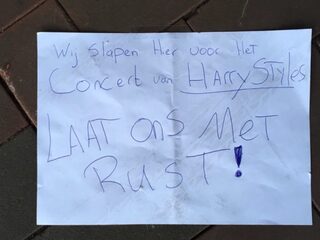 Wij slapen Hier voor Het
Concert van HARRY STYles
LAAT ons MeT
RusT!